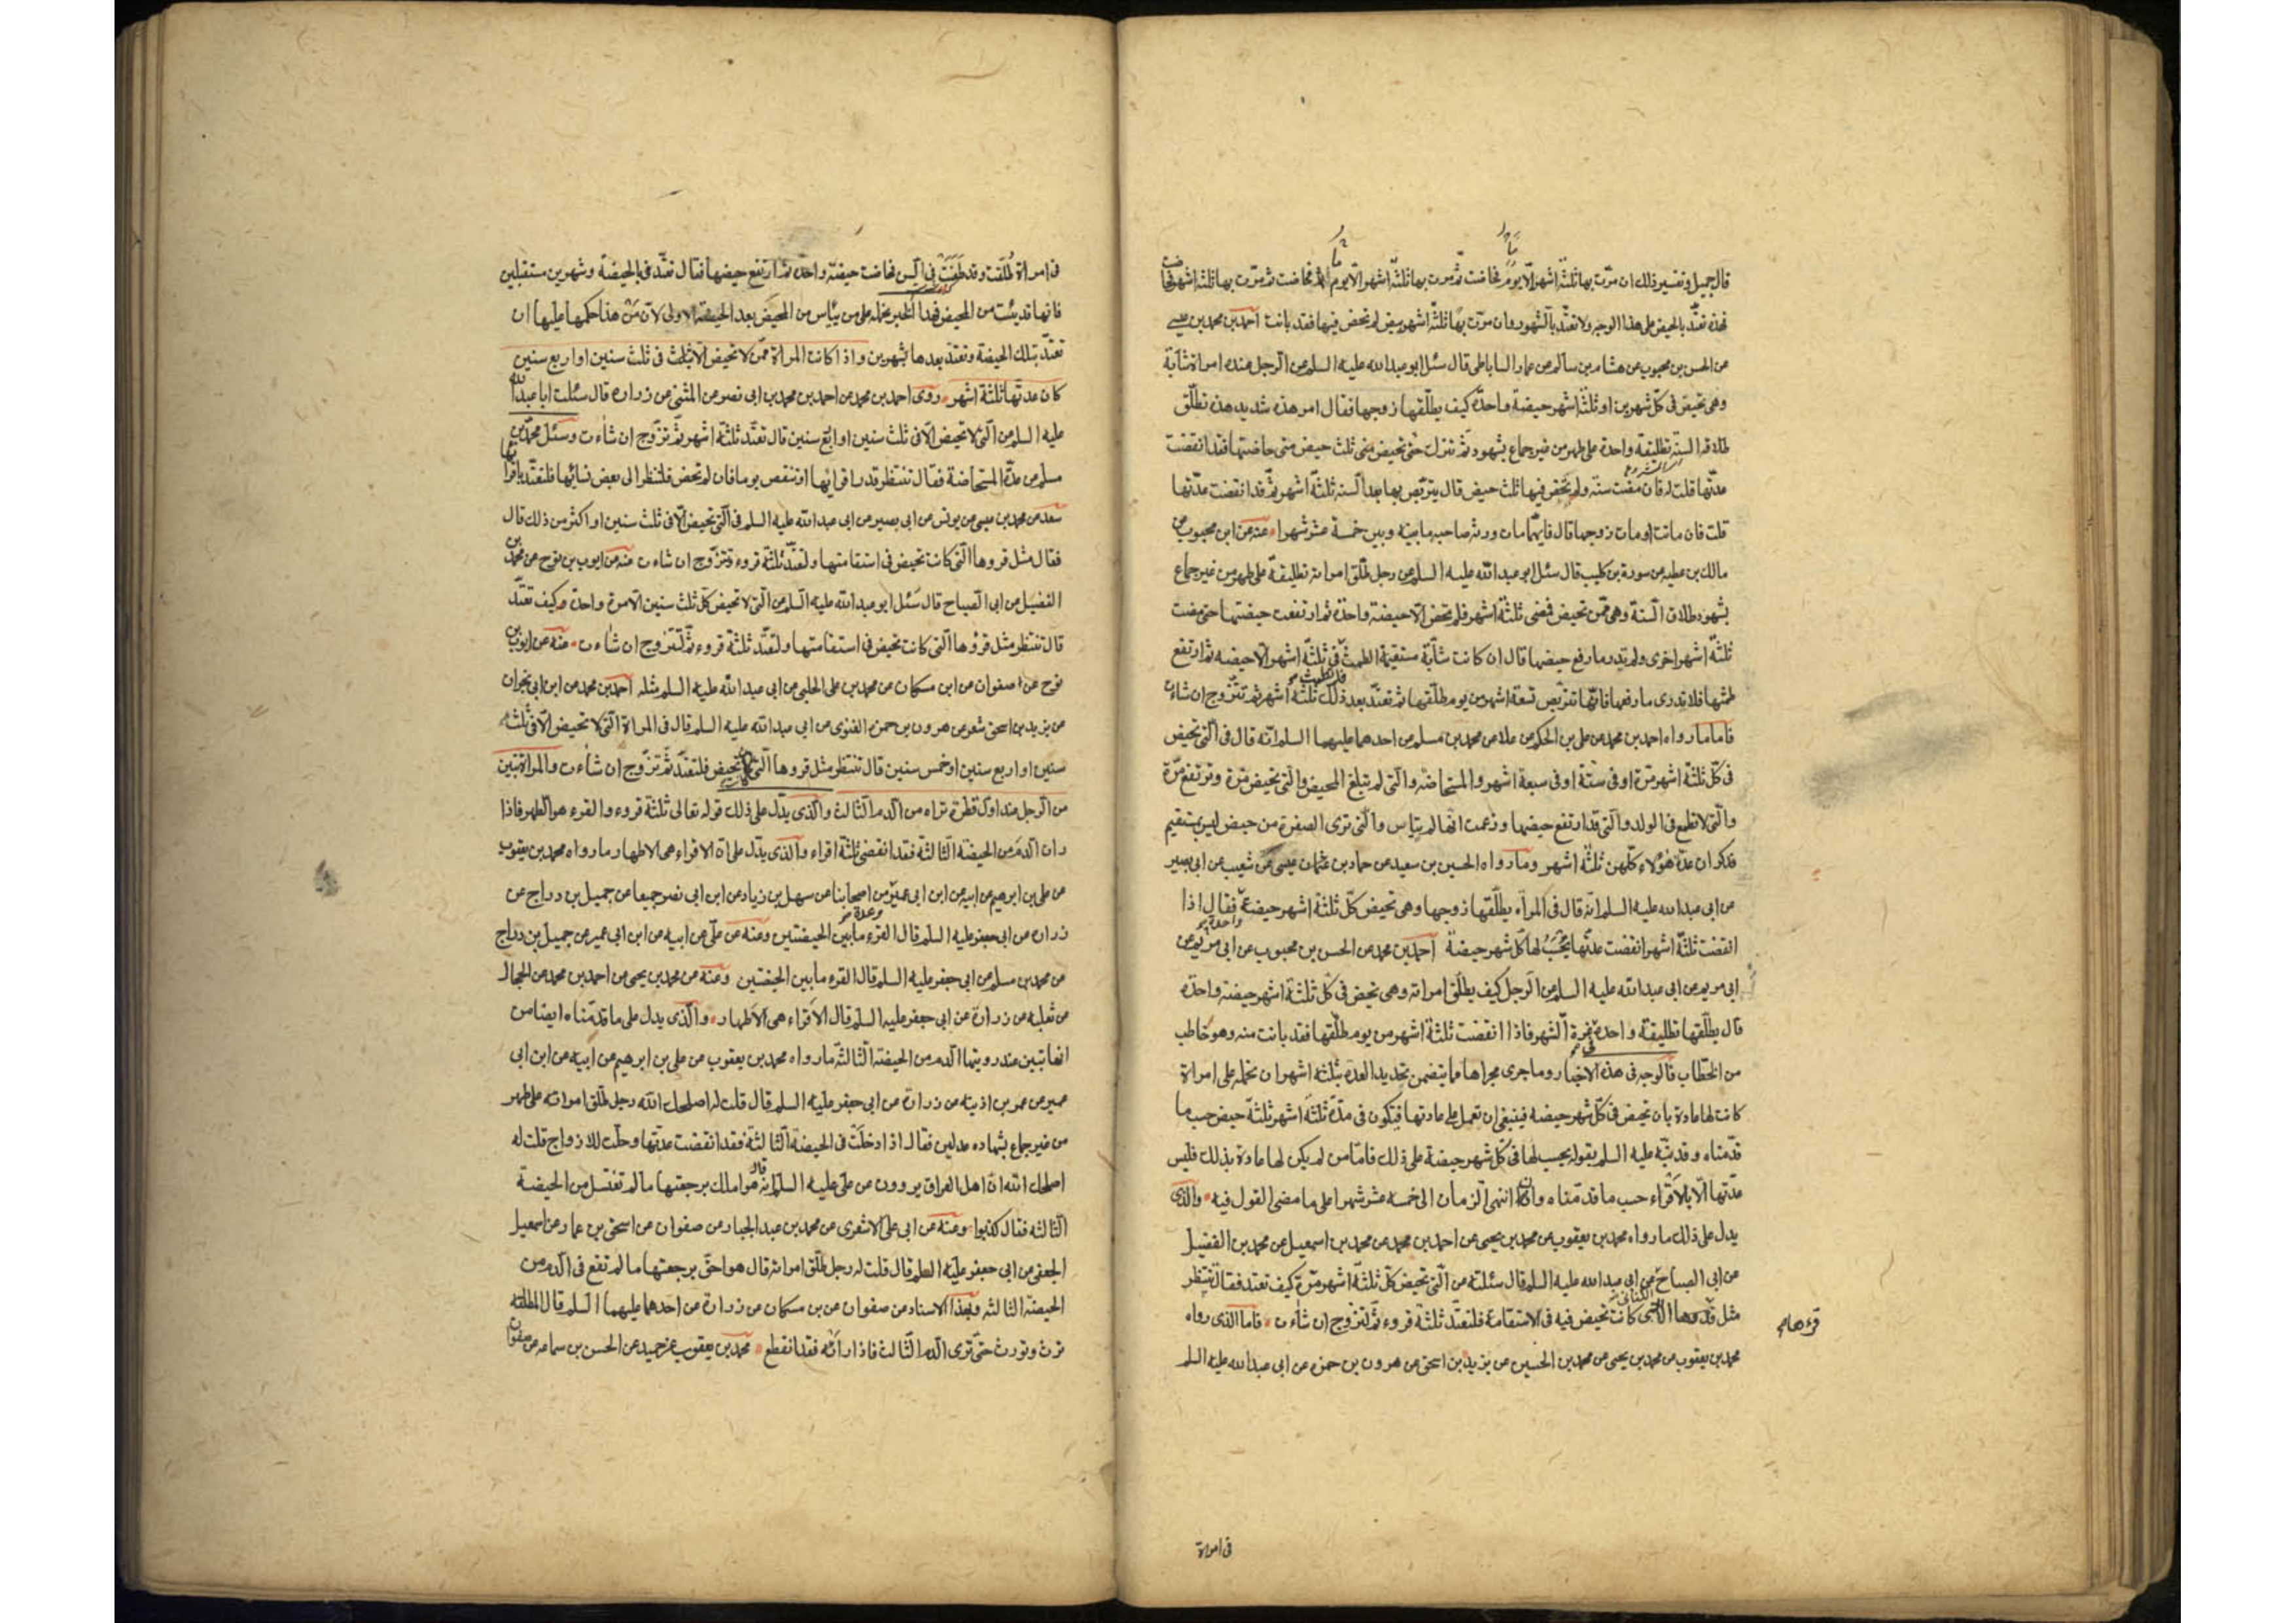 قال جميل وتفسير ذلك ان مرّت بها ثلثة اشهر الّا يوم فحاضت ثم مرت بها ثلثة اشهر الا يوم فحاضت ثم مرّت بها ثلثة اشهر
فهذه تعتدّ بالحيض على هذا الوجه ولا تعتدّ بالشهور وان مرّت بها ثلثة اشهر بيض لم تحض فيها فقد بانت احمد بن محمد بن عيسى
عن الحسن بن محبوب عن هشام بن سالم عن عمار الساباطى قال سئل ابو عبد الله عليه السلم عن الرجل عنده امراة شابّة
وهى تحيض فى كل شهرين او ثلثة اشهر حيضة واحدة كيف يطلّقها زوجها فقال امر هذه شديد هذه تطلّق
طلاق السنة تطليقة واحدة على طهر من غير جماع بشهود ثم تترك حتى تحيض ثلث حيض متى حاضتها فقد انقضت
عدّتها قلت له فان مضت سنة ولم تحض فيها ثلث حيض قال يتربّص بها بعد السنة ثلثة اشهر ثم قد انقضت عدّتها
قلت فان ماتت او مات زوجها قال فايّهما مات ورثه صاحبه ما بينه وبين خمسة عشر شهرا عنه عن ابن محبوب عن
مالك بن عطيه عن سورة بن كليب قال سئل ابو عبد الله عليه السلم عن رجل طلّق امراته تطليقة على طهر من غير جماع
بشهود طلاق السنة وهى ممّن تحيض فمضى ثلثة اشهر فلم تحض الّا حيضة واحدة ثم ارتفعت حيضتها حتى مضت
ثلثة اشهر اخرى ولم تدر ما رفع حيضها قال ان كانت شابّة مستقيمة الطمث فى ثلثة اشهر الّا حيضه ثم ارتفع
طمثها فلا تدرى ما رفعها فانّها تتربّص تسعة اشهر من يوم طلّقها ثم تعتدّ بعد ذلك ثلثة اشهر ثم تتزوّج ان شاءت
فاما ما رواه احمد بن محمد عن على بن الحكم عن علا عن محمد بن مسلم عن احدهما عليهما السلم انّه قال فى الّتى تحيض
فى كلّ ثلثة اشهر مرّة او فى ستّة او فى سبعة اشهر والمستحاضة والّتى لم تبلغ المحيض والّتى تحيض مرّة وترتفع مرّة
والّتى لا تطمع فى الولد والّتى قد ارتفع حيضها وزعمت انها لم يتاس والّتى ترى الصفرة من حيض ليس بمستقيم
فذكر ان عدّة هؤلاء كلّهن ثلثة اشهر وما رواه الحسين بن سعيد عن حماد بن عثمان عن شعيب عن ابى بصير
عن ابى عبد الله عليه السلم انه قال فى المراه يطلّقها زوجها وهى تحيض كلّ ثلثة اشهر حيضة فقال اذا
انقضت ثلثة اشهر انقضت عدّتها يحسب لها كلّ شهر حيضة احمد بن محمد عن الحسن بن محبوب عن
ابى مريم عن ابى عبد الله عليه السلم عن الرجل كيف يطلّق امراته وهى تحيض فى كلّ ثلثة اشهر حيضة واحدة
قال يطلّقها تطليقة واحدة فى غرة الشهر فاذا انقضت ثلثة اشهر من يوم طلّقها فقد بانت منه وهو خاطب
من الخطّاب فالوجه فى هذه الاخبار وما جرى مجراها مما يتضمن تحديد العدة بثلثة اشهر ان نحمله على امراة
كانت لها عادة بان تحيض فى كلّ شهر حيضه فينبغى ان تعمل على عادتها فتكون فى مدّة ثلثة اشهر ثلثة حيض حسب ما
قدّمناه وقد نبّه عليه السلم بقوله يحسب لها فى كلّ شهر حيضة على ذلك فامّا من لم يكن لها عادة بذلك فليس
عدّتها الّا بالاقراء حسب ما قدّمناه وان انتهى الزمان الى خمسة عشر شهرا على ما مضى القول فيه والذى
يدل على ذلك ما رواه محمد بن يعقوب عن محمد بن يحيى عن احمد بن محمد عن محمد بن اسمعيل عن محمد بن الفضيل
عن ابى الصباح الكنانى عن ابى عبد الله عليه السلم قال سئلته عن الّتى تحيض كلّ ثلثة اشهر مرّة كيف تعتد فقال تنتظر
مثل قروها التى كانت تحيض فيه فى الاستقامة فلتعتدّ ثلثة قروء ثم لتزوج ان شاءت فاما الذى رواه
قرءها
محمد بن يعقوب عن محمد بن يحيى عن محمد بن الحسين عن يزيد بن اسحق عن هرون بن حمزه عن ابى عبد الله عليه السلم
فى امراة
فى امراة طُلّقت وقد طعنت فى السن فحاضت حيضة واحدة ثم ارتفع حيضها فقال تعتدّ بالحيضة وشهرين مستقبلين
فانها قد يئست من المحيض فهذا الخبر نحمله على من يئاس من المحيض بعد الحيضة الاولى لانّ من هذا حكمها عليها ان
تعتدّ بتلك الحيضة وتعتدّ بعدها بشهرين واذا كانت المراة ممّن لا تحيض الّا فى ثلث سنين او اربع سنين
كان عدّتها ثلثة اشهر روى احمد بن محمد عن احمد بن محمد بن ابى نصر عن المثنى عن زراره قال سئلت ابا عبد الله
عليه السلم عن الّتى لا تحيض الّا فى ثلث سنين او اربع سنين قال تعتدّ ثلثة اشهر ثم تزوّج ان شاءت وسئل محمد بن
مسلم عن عدّة المستحاضة فقال تنتظر قدر اقرائها او تنقص يوما فان لم تحض فلتنظر الى بعض نسائها فلتعتدّ باقرائها
سعد عن محمد بن عيسى عن يونس عن ابى بصير عن ابى عبد الله عليه السلم فى الّتى تحيض الّا فى ثلث سنين او اكثر من ذلك قال
فقال مثل قروها الّتى كانت تحيض فى استقامتها ولتعتدّ ثلثة قروء وتتزوّج ان شاءت عنه عن ايوب بن نوح عن محمد بن
الفضيل عن ابى الصباح قال سُئل ابو عبد الله عليه السلم عن الّتى لا تحيض كلّ ثلث سنين الّا مرة واحدة كيف تعتدّ
قال تنتظر مثل قروها الّتى كانت تحيض فى استقامتها ولتعتدّ ثلثة قروء ثم لتزوج ان شاءت عنه عن ايوب بن
نوح عن صفوان عن ابن مسكان عن محمد بن على الحلبى عن ابى عبد الله عليه السلم مثله احمد بن محمد عن ابن ابى نجران
عن يزيد بن اسحق شعر عن هرون بن حمزه الغنوى عن ابى عبد الله عليه السلم قال فى المراة الّتى لا تحيض الّا فى ثلثة
سنين او اربع سنين او خمس سنين قال تنتظر مثل قروها الّتى كانت تحيض فلتعتدّ ثم تزوّج ان شاءت والمراة تبين
من الرجل عند اول قطرة تراه من الدم الثالث والّذى يدّل على ذلك قوله تعالى ثلثة قروء والقرء هو الطهر فاذا
رات الدم من الحيضة الثالثة فقد انقضى ثلثة اقراء والّذى يدّل على انّ الاقراء هى الاطهار ما رواه محمد بن يعقوب
عن على بن ابرهيم عن ابيه عن ابن ابى عمير وعدة من اصحابنا عن سهل بن زياد عن ابن ابى نصر جميعا عن جميل بن دراج عن
زراره عن ابى جعفر عليه السلم قال القرء ما بين الحيضتين وعنه عن على عن ابيه عن ابن ابى عمير عن جميل بن دراج
عن محمد بن مسلم عن ابى جعفر عليه السلم قال القرء ما بين الحيضتين وعنه عن محمد بن يحيى عن احمد بن محمد عن الحجال
عن ثعلبه عن زرارة عن ابى جعفر عليه السلم قال الاقراء هى الاطهار والّذى يدل على ما قدّمناه ايضا من
انها تبين عند رويتها الدم من الحيضة الثالثة ما رواه محمد بن يعقوب عن على بن ابرهيم عن ابيه عن ابن ابى
عمير عن عمر بن اذينه عن زرارة عن ابى جعفر عليه السلم قال قلت له اصلحك الله رجل طلّق امراته على طهر
من غير جماع بشهاده عدلين فقال اذا دخلت فى الحيضة الثالثة فقد انقضت عدّتها وحلّت للازواج قلت له
اصلحك الله انّ اهل العراق يروون عن على عليه السلم انه قال هو املك برجعتها ما لم تغتسل من الحيضة
الثالثه فقال كذبوا وعنه عن ابى على الاشعرى عن محمد بن عبد الجبار عن صفوان عن اسحق بن عمار عن اسمعيل
الجعفى عن ابى جعفر عليه السلم قال قلت له رجل طلّق امراته قال هو احقّ برجعتها ما لم تقع فى الدم من
الحيضة الثالثه وبهذا الاسناد عن صفوان عن بن مسكان عن زرارة عن احدهما عليهما السلم قال المطلقه
ترث وتورث حتّى ترى الدم الثالث فاذا راته فقد انقطع محمد بن يعقوب عن حميد عن الحسن بن سماعه عن صفوان